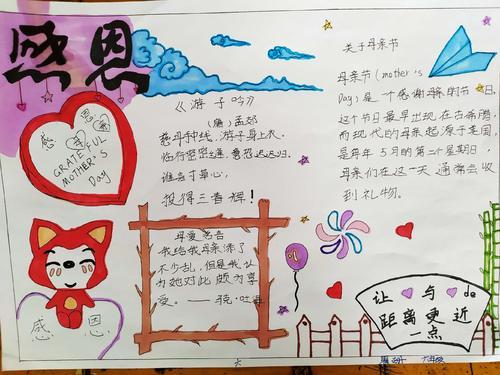 感恩
感恩
GRATEFUL
MOTHER'S
Day
《游子吟》
(唐) 孟郊
慈母手中线，游子身上衣。
临行密密缝，意恐迟迟归。
谁言寸草心，
报得三春晖！
关于母亲节
母亲节(mother's
Day)是一个感谢母亲的节日。
这个节日最早出现在古希腊，
而现代的母亲起源于美国，
是每年5月的第二个星期日，
母亲们在这一天通常会收
到礼物。
母爱名言
我给我母亲添了
不少乱，但是我认
为她对此颇为享
爱。——
感恩
让 与 de
距离更近
一点